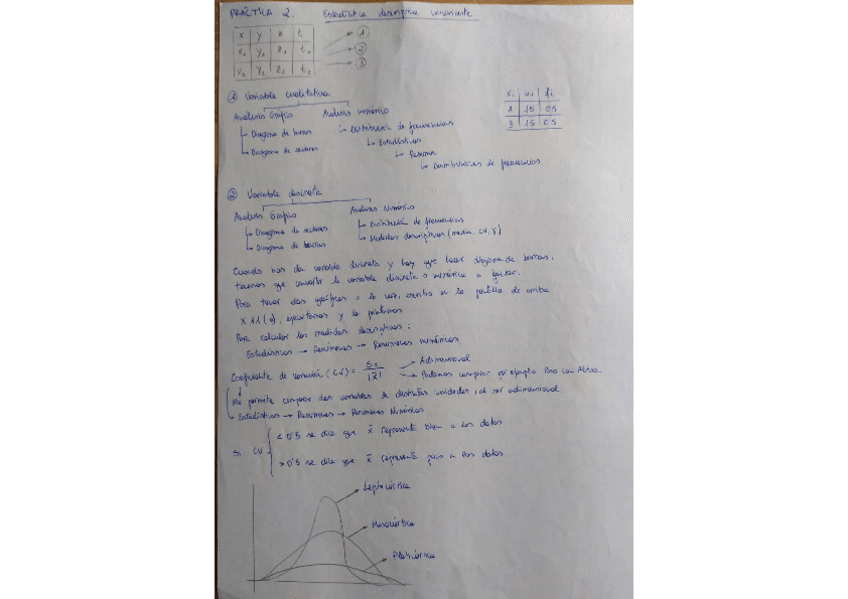 PRÁCTICA 2. Estadística descriptiva univariante
x y z t
x1 y1 z1 t1
x2 y2 z2 t2
① ② ③
① Variable cualitativa
Análisis Gráfico Análisis numérico
Diagrama de barras
Diagrama de sectores
Distribución de frecuencias
Estadísticos
Resumen
Distribuciones de frecuencias
xi ni fi
2 15 0'5
3 15 0'5
② Variable discreta
Análisis Gráfico Análisis Numérico
Diagrama de sectores
Diagrama de barras
Distribución de frecuencias
Medidas descriptivas (media, CV, γ)
Cuando nos da variable discreta y hay que hacer diagrama de barras,
tenemos que convertir la variable discreta o numérica a factor.
Para tener dos gráficos a la vez, escribo en la pantalla de arriba
X11(), ejecutamos y lo pintamos
Para calcular las medidas descriptivas:
Estadísticos → Resúmenes → Resúmenes numéricos
Coeficiente de variación (CV) = Sx / |x̄|
Adimensional
Podemos comparar por ejemplo Peso con Altura.
Me permite comparar dos variables de distintas unidades, al ser adimensional
Estadísticos → Resúmenes → Resúmenes Numéricos
Si CV
< 0'5 se dice que x̄ representa bien a los datos
> 0'5 se dice que x̄ representa poco a los datos
Leptocúrtica
Mesocúrtica
Platicúrtica